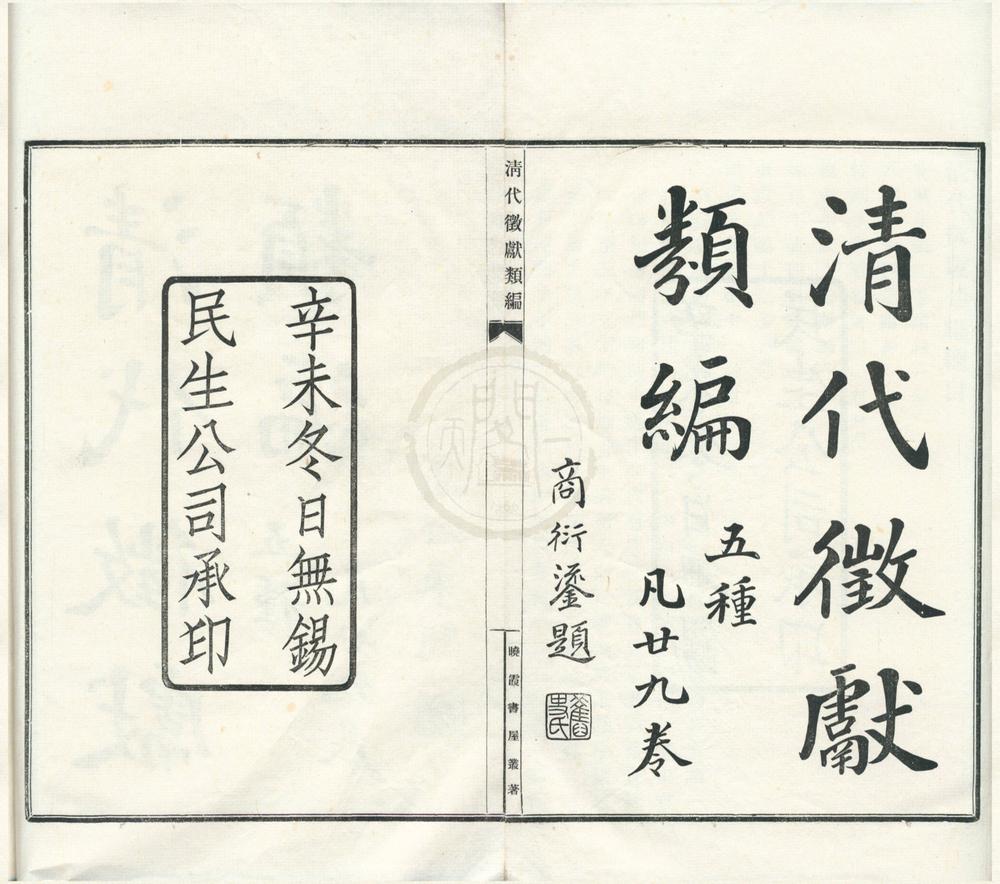 清代徵獻
類編
五種
凡廿九卷
商衍鎏題
舊史氏
清代徵獻類編
曉霞書屋叢著
辛未冬日無錫
民生公司承印